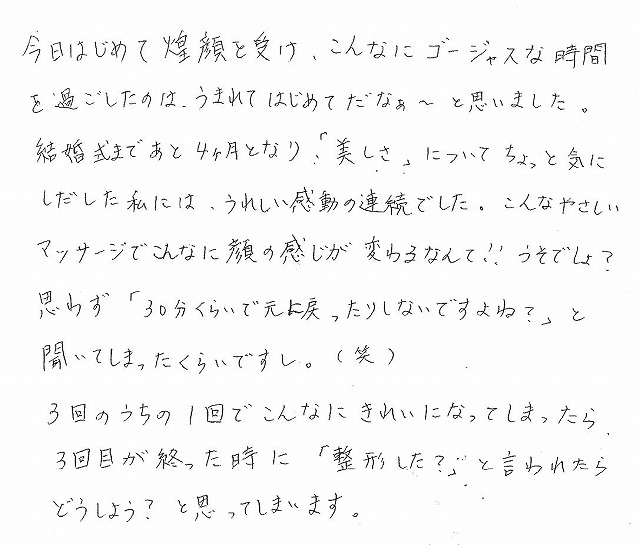 今日はじめて煌顔を受け、こんなにゴージャスな時間
を過ごしたのは、うまれてはじめてだなぁ〜と思いました。
結婚式まであと4ヶ月となり、「美しさ」についてちょっと気に
しだした私には、うれしい感動の連続でした。こんなやさしい
マッサージでこんなに顔の感じが変わるなんて!!うそでしょ?
思わず「30分くらいで元に戻ったりしないですよね?」と
聞いてしまったくらいですし。(笑)
3回のうちの1回でこんなにきれいになってしまったら
3回目が終った時に「整形した?」と言われたら
どうしよう?と思ってしまいます。